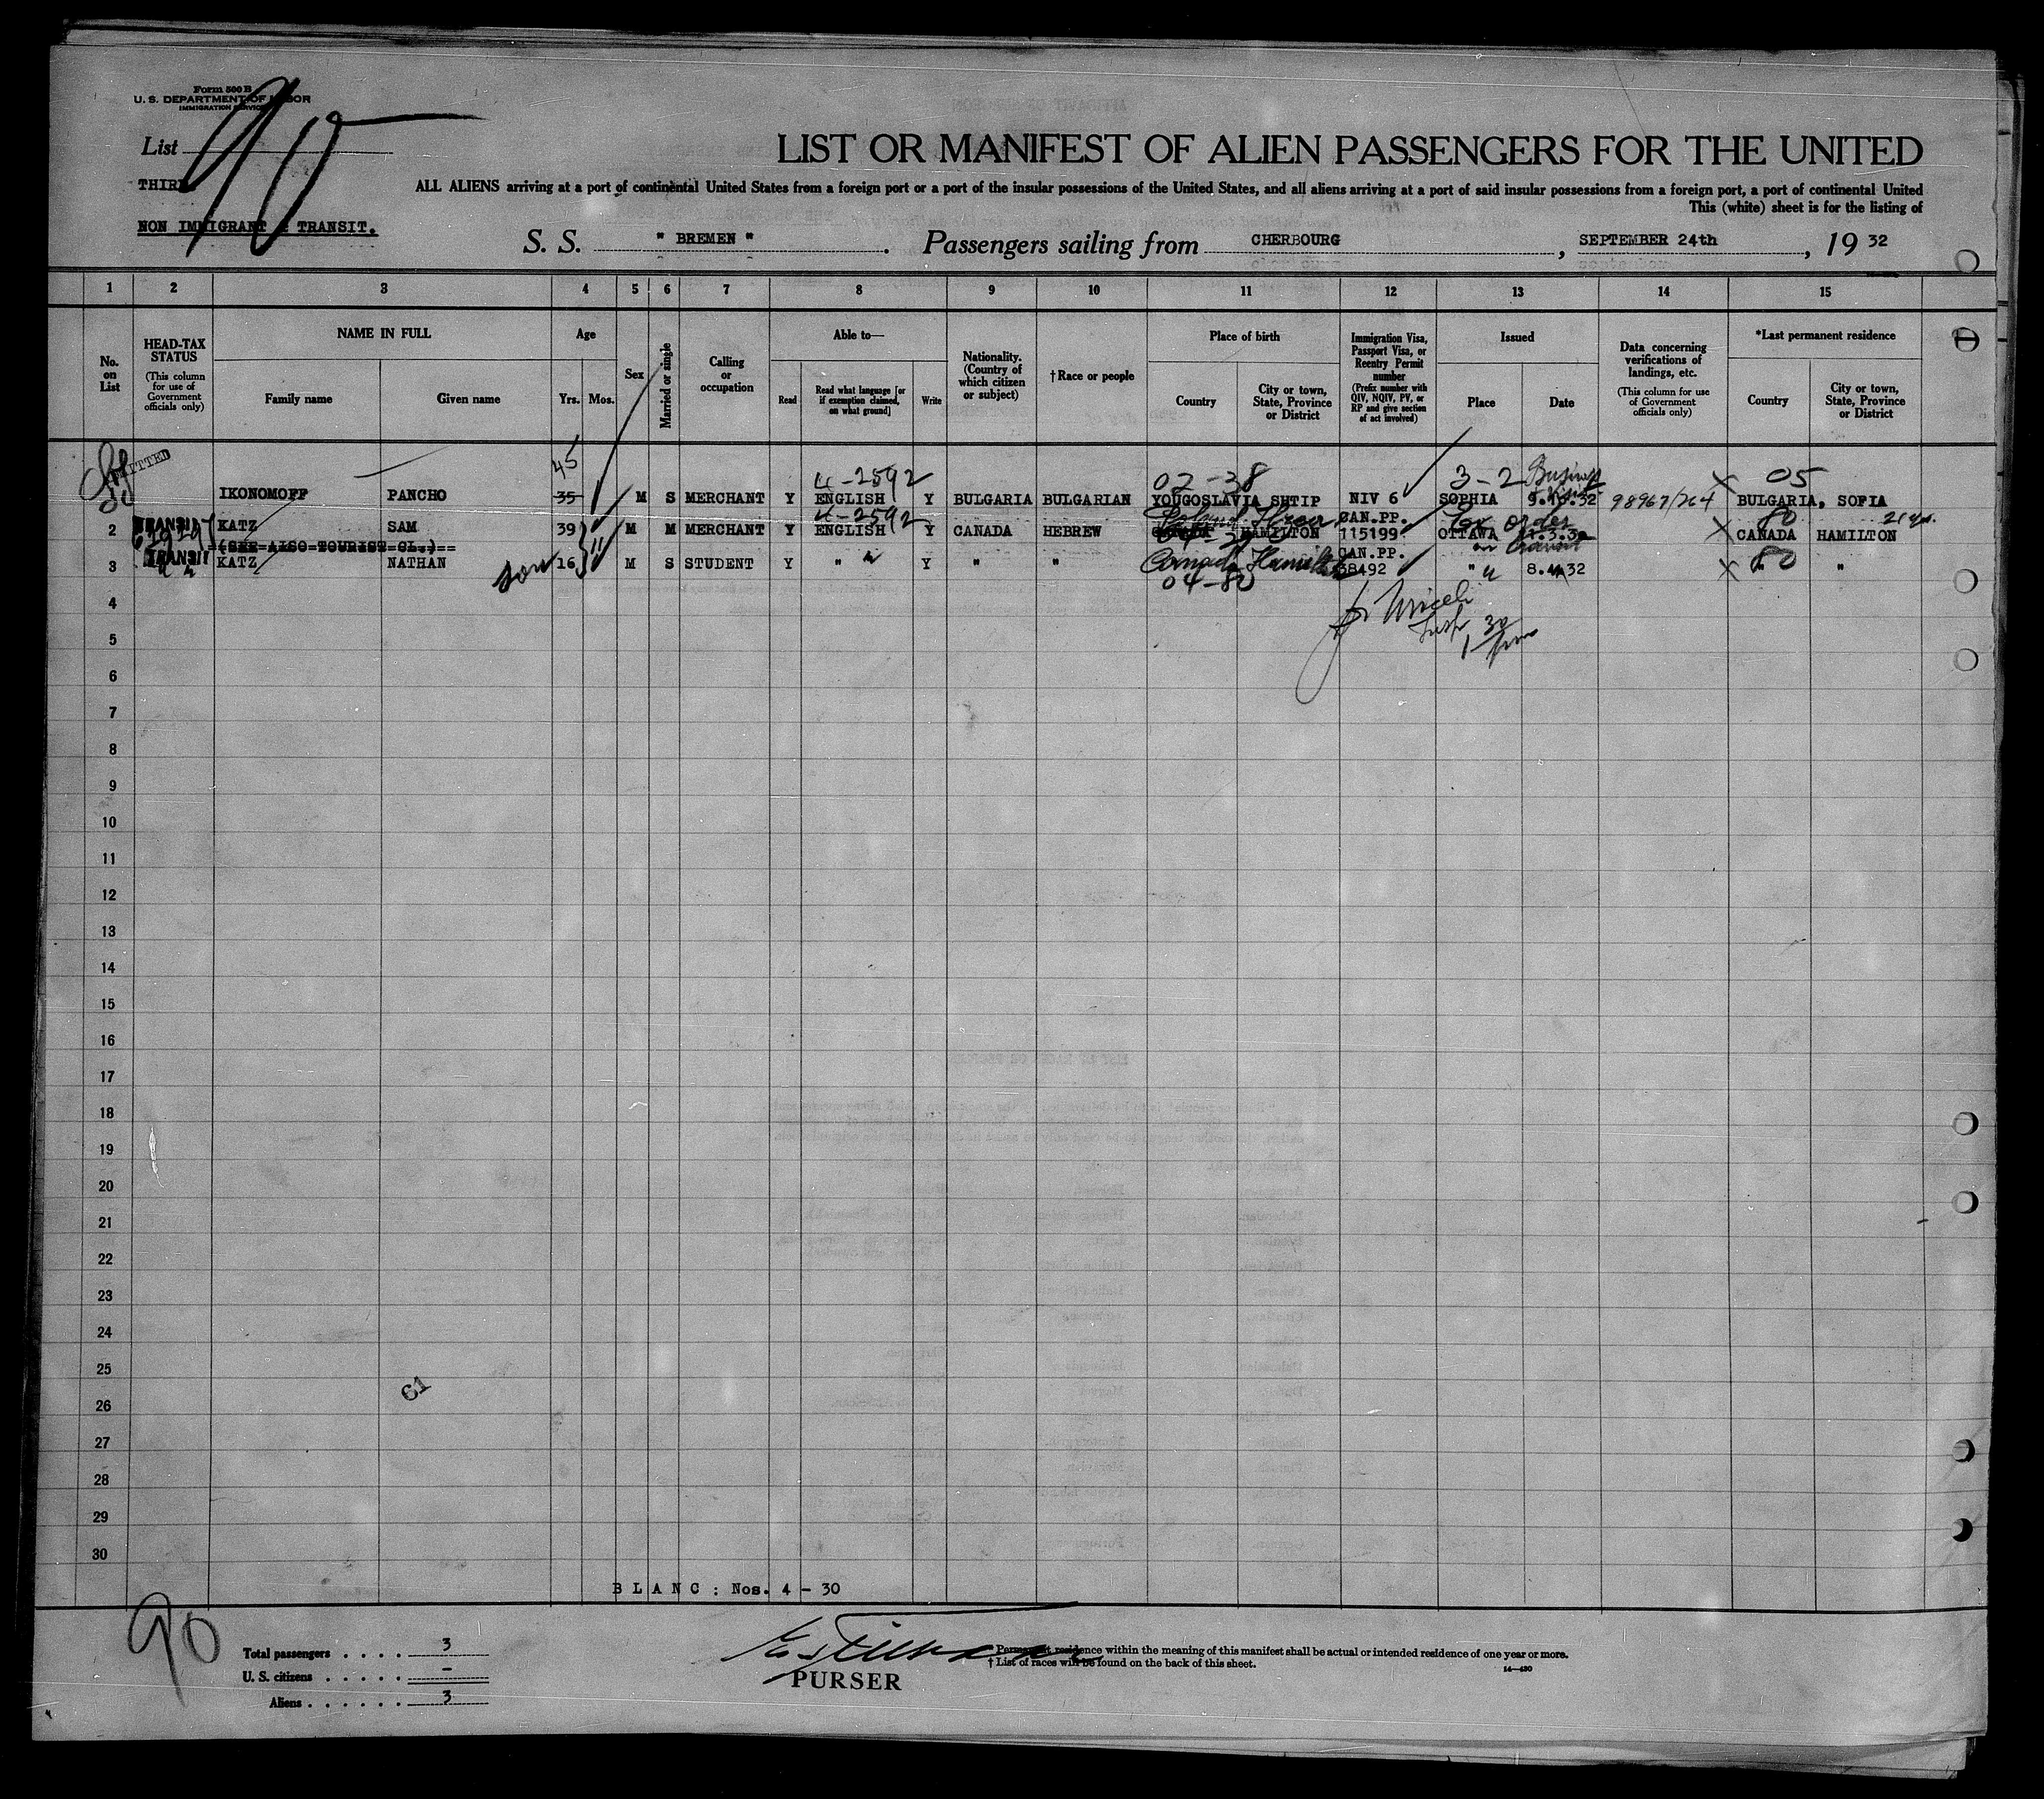 Form 500 B
U. S. DEPARTMENT OF LABOR
IMMIGRATION SERVICE
List 90
THIRD
NON IMMIGRANT & TRANSIT.
LIST OR MANIFEST OF ALIEN PASSENGERS FOR THE UNITED
ALL ALIENS arriving at a port of continental United States from a foreign port or a port of the insular possessions of the United States, and all aliens arriving at a port of said insular possessions from a foreign port, a port of continental United
This (white) sheet is for the listing of
S. S. " BREMEN ". Passengers sailing from CHERBOURG, SEPTEMBER 24th, 19 32
1 2 3 4 5 6 7 8 9 10 11 12 13 14 15
No. on List
HEAD-TAX STATUS
(This column for use of Government officials only)
NAME IN FULL
Family name
Given name
Age
Yrs. Mos.
Sex
Married or single
Calling or occupation
Able to—
Read
Read what language [or if exemption claimed, on what ground]
Write
Nationality. (Country of which citizen or subject)
†Race or people
Place of birth
Country
City or town, State, Province or District
Immigration Visa, Passport Visa, or Reentry Permit number
(Prefix number with QIV, NQIV, PV, or RP and give section of act involved)
Issued
Place
Date
Data concerning verifications of landings, etc.
(This column for use of Government officials only)
*Last permanent residence
Country
City or town, State, Province or District
ADMITTED
45 4-2592 02-38 3-2 Business 05
IKONOMOFF PANCHO 35 M S MERCHANT Y ENGLISH Y BULGARIA BULGARIAN YOUGOSLAVIA SHTIP NIV 6 SOPHIA 98967/764 BULGARIA, SOFIA
4-2592 Poland CAN.PP. 80
2 TRANSIT KATZ SAM 39 M M MERCHANT Y ENGLISH Y CANADA HEBREW HAMILTON 115199 OTTAWA CANADA HAMILTON
(SEE ALSO TOURIST CL.)
TRANSIT CAN.PP.
3 KATZ NATHAN son 16 M S STUDENT Y " " Y " " Canada Hamilton 38492 " " 80 "
04-80
Insp
1 30 pm
4
5
6
7
8
9
10
11
12
13
14
15
16
17
18
19
20
21
22
23
24
25
61
26
27
28
29
30
BLANC : Nos. 4 - 30
90
Total passengers . . . . 3
U. S. citizens . . . . . –
Aliens . . . . . . 3
PURSER
* Permanent residence within the meaning of this manifest shall be actual or intended residence of one year or more.
† List of races will be found on the back of this sheet.
14—430